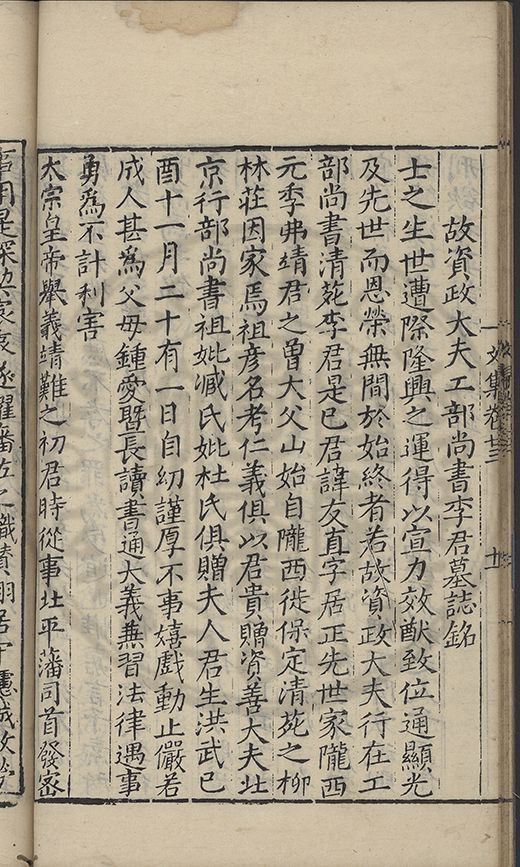 文集卷
十
故資政大夫工部尚書李君墓誌銘
士之生世遭際隆興之運得以宣力效猷致位通顯光
及先世而恩榮無間於始終者若故資政大夫行在工
部尚書清苑李君是已君諱友直字居正先世家隴西
元季弗靖君之曾大父山始自隴西徙保定清苑之柳
林莊因家焉祖彦名考仁義俱以君貴贈資善大夫北
京行部尚書祖妣臧氏妣杜氏俱贈夫人君生洪武己
酉十一月二十有一日自幼謹厚不事嬉戲動止儼若
成人甚爲父母鍾愛暨長讀書通大義兼習法律遇事
勇爲不計利害
太宗皇帝舉義靖難之初君時從事北平藩司首發密